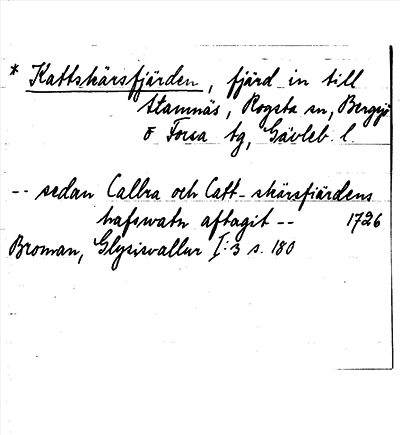 * Kattskärsfjärden, fjärd in till
Stamnäs, Rogsta sn, Bergsjö
o Forsa tg, Gävleb. l.
-- sedan Calbra och Catt-skärsfiärdens
hafswatn aftagit -- 1726
Broman, Glysisvallur I:3 s. 180